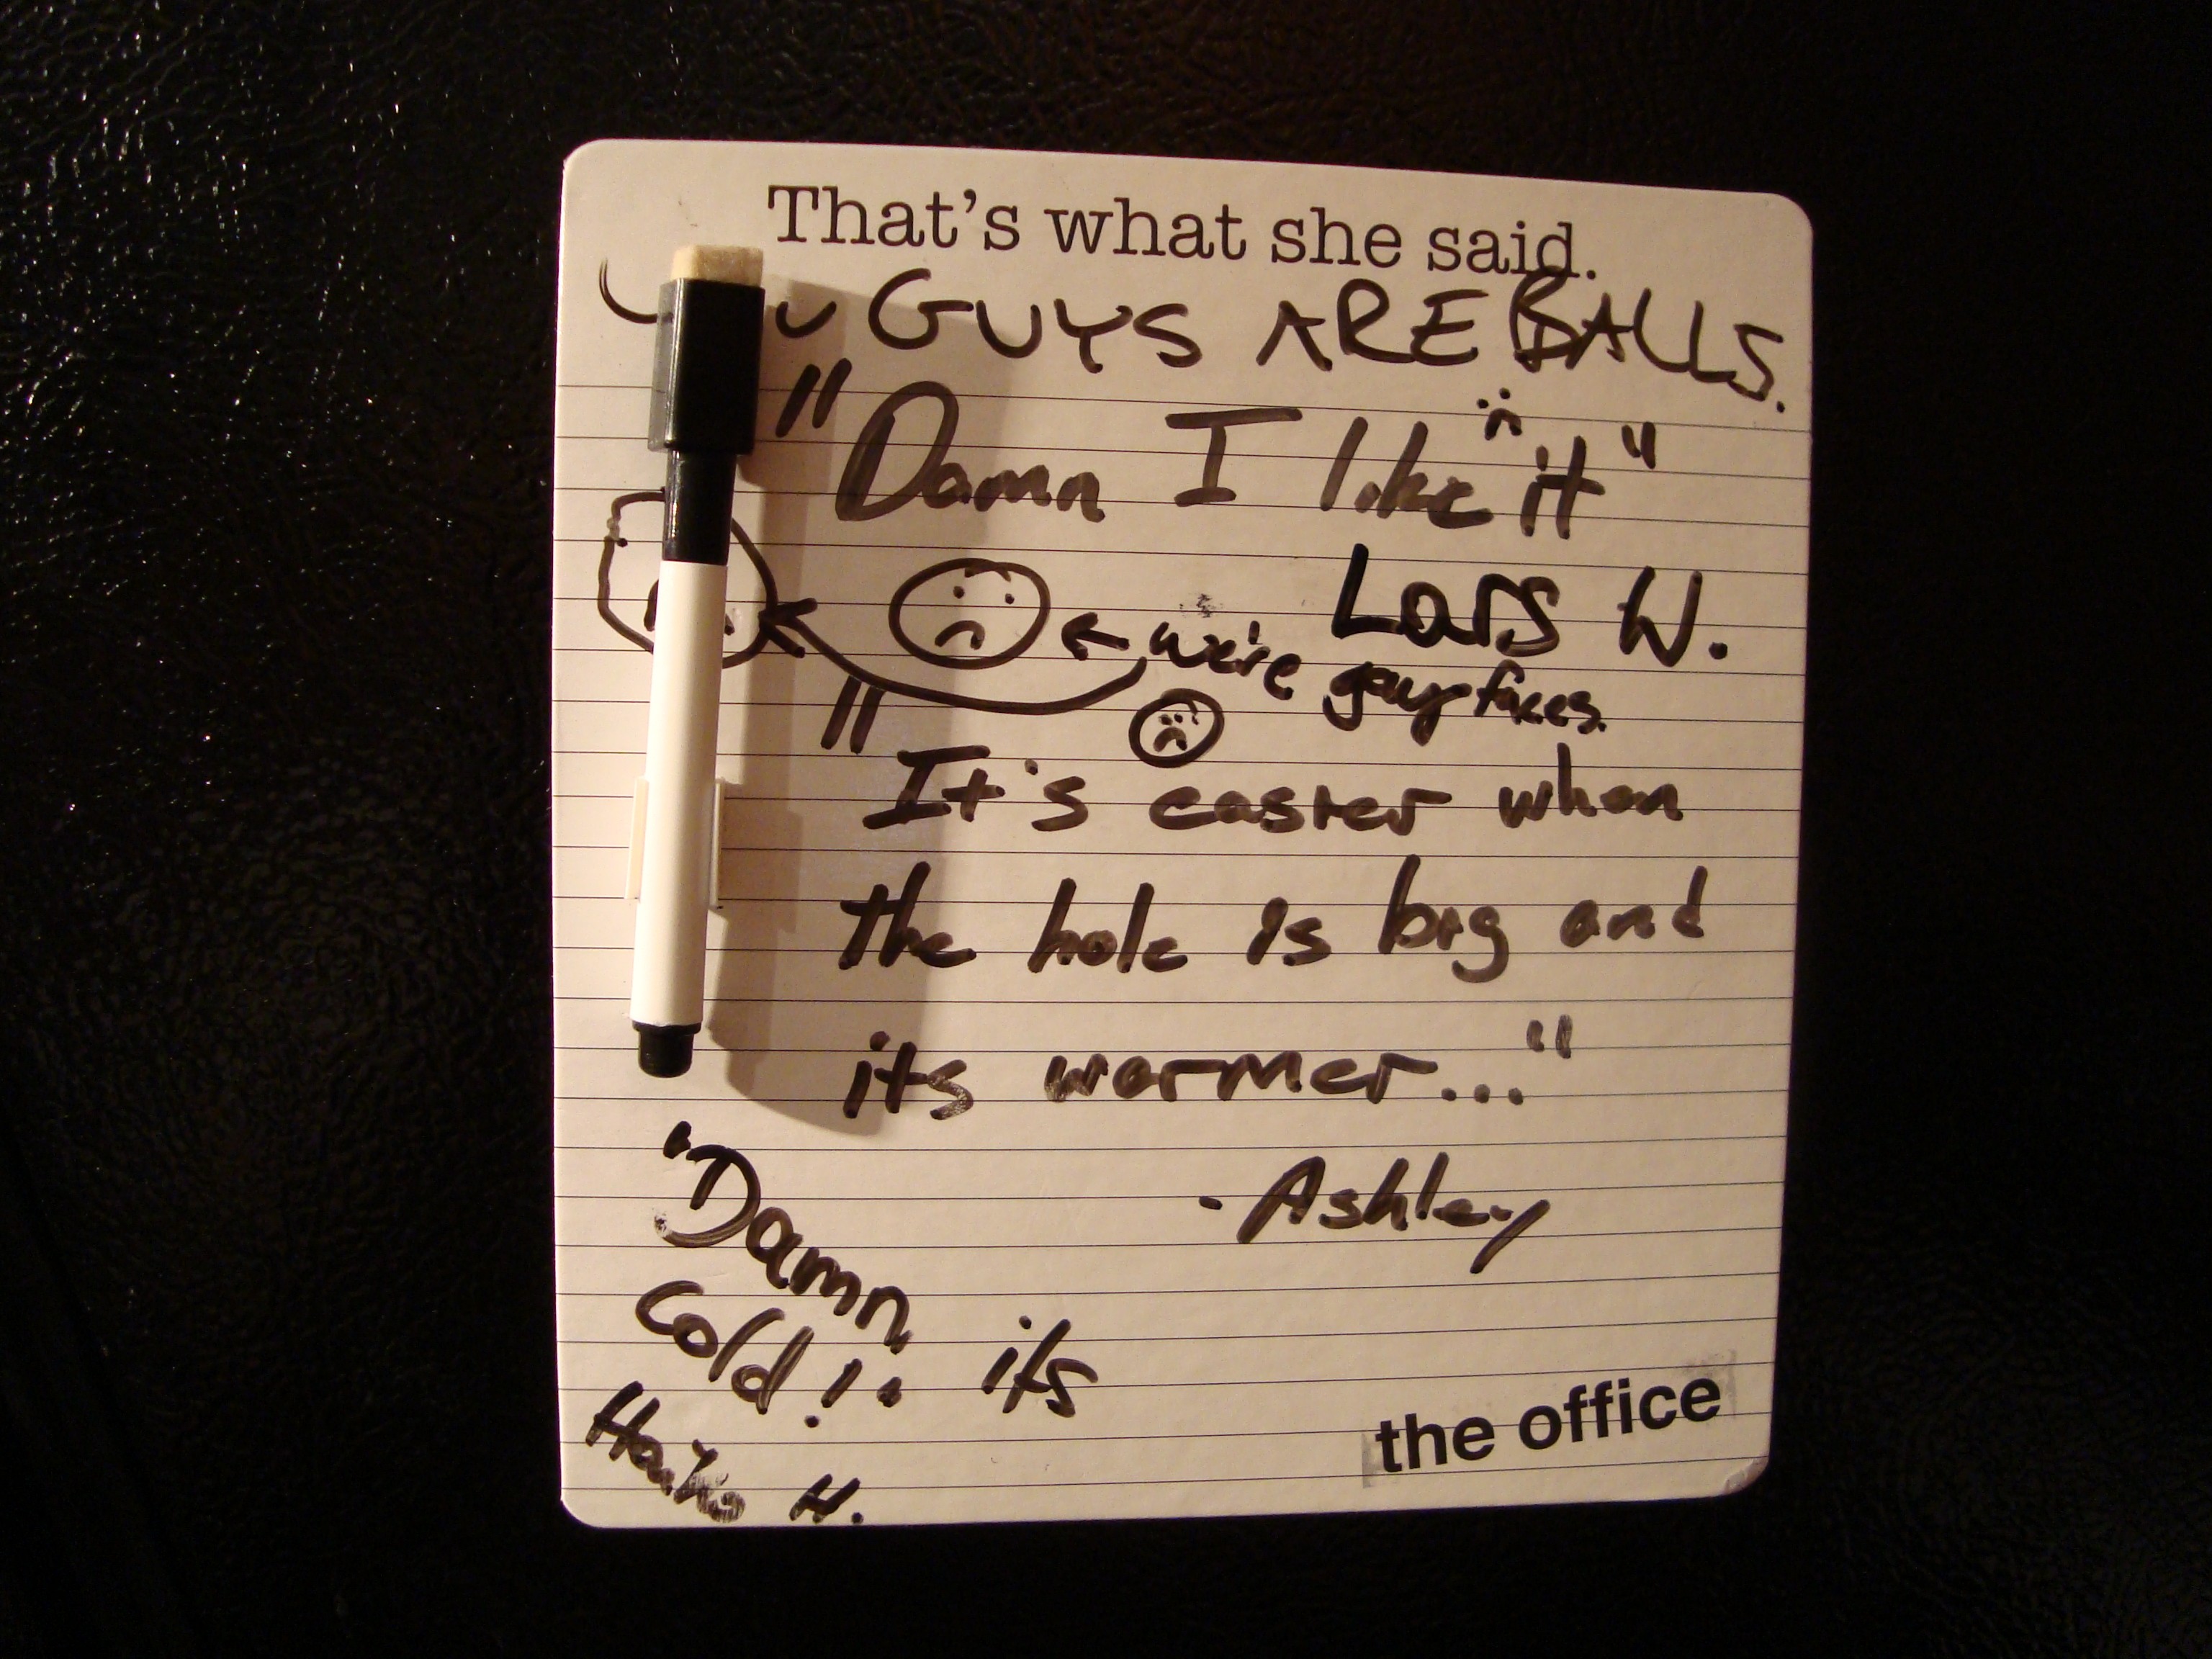 That's what she said.
You GUYS ARE BALLS.
"Damn I like it"
Lars W.
we're gay faces.
"It's easier when
the hole is big and
its warmer..."
-Ashley
"Damn its
Cold!"
H.
the office